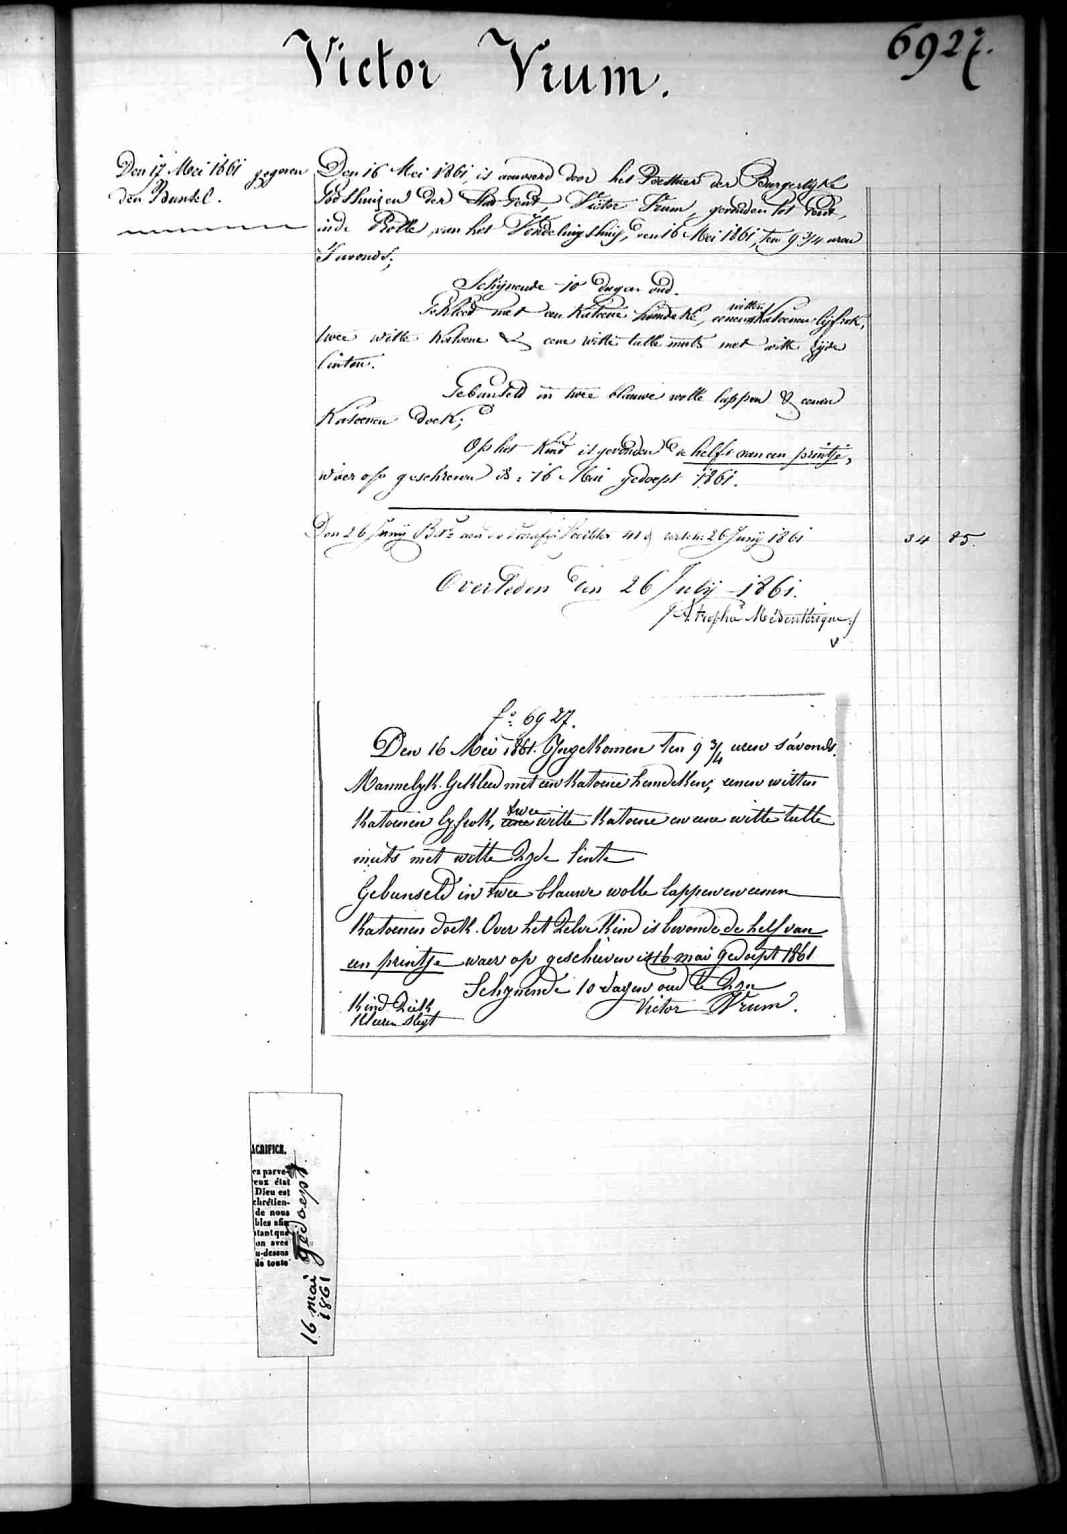 6927.
Victor Vrum.
Den 17 Mei 1861 gegeven
den Bunsel.
Den 16 Mei 1861, is aenveerd door het Bestuur der Burgerlyke
Godshuizen der Stad Gent, Victor Vrum, gevonden tot Gent,
in de Rolle van het Vondelingshuis, den 16 Mei 1861, ten 9 3/4 uren
s'avonds;
Schijnende 10 dagen oud.
Gekleed met een katoene hemdeke, eenen witten katoenen lijfrok,
twee witte katoene & eene witte tulle muts met witte zijde
linten.
Gebunseld in twee blauwe wolle lappen & eenen
katoenen doek;
Op het kind is gevonden de helft van een printje,
waer op geschreven is: 16 Mai gedoept 1861.
Den 26 Junij 26 Junij 1861 34 85.
Overleden den 26 July 1861.
f° 6927.
Den 16 Meii 1861. Yngekomen ten 9 3/4 uren s'avonds.
Mannelyk. Gekleed met een katoene hemdeken, eenen witten
katoenen lyfrok, eene twee witte katoene en eene witte tulle
muts met witte Zyde linte
Gebunseld in twee blauwe wolle lappen en eenen
katoenen doek. Over het Zelve kind is bevonde de helf van
een printje waer op geschreven is 16 mai gedoept 1861
Schynende 10 dagen oud te Zyn
Kind Ziek Victor Vrum.
kleeren slegt
ACRIFICE.
ez parve-
eux état
Dieu est
chrétien-
de nous
bles afin
tant que
on avec
u-dessus
de toute
16 mai gedoept
1861